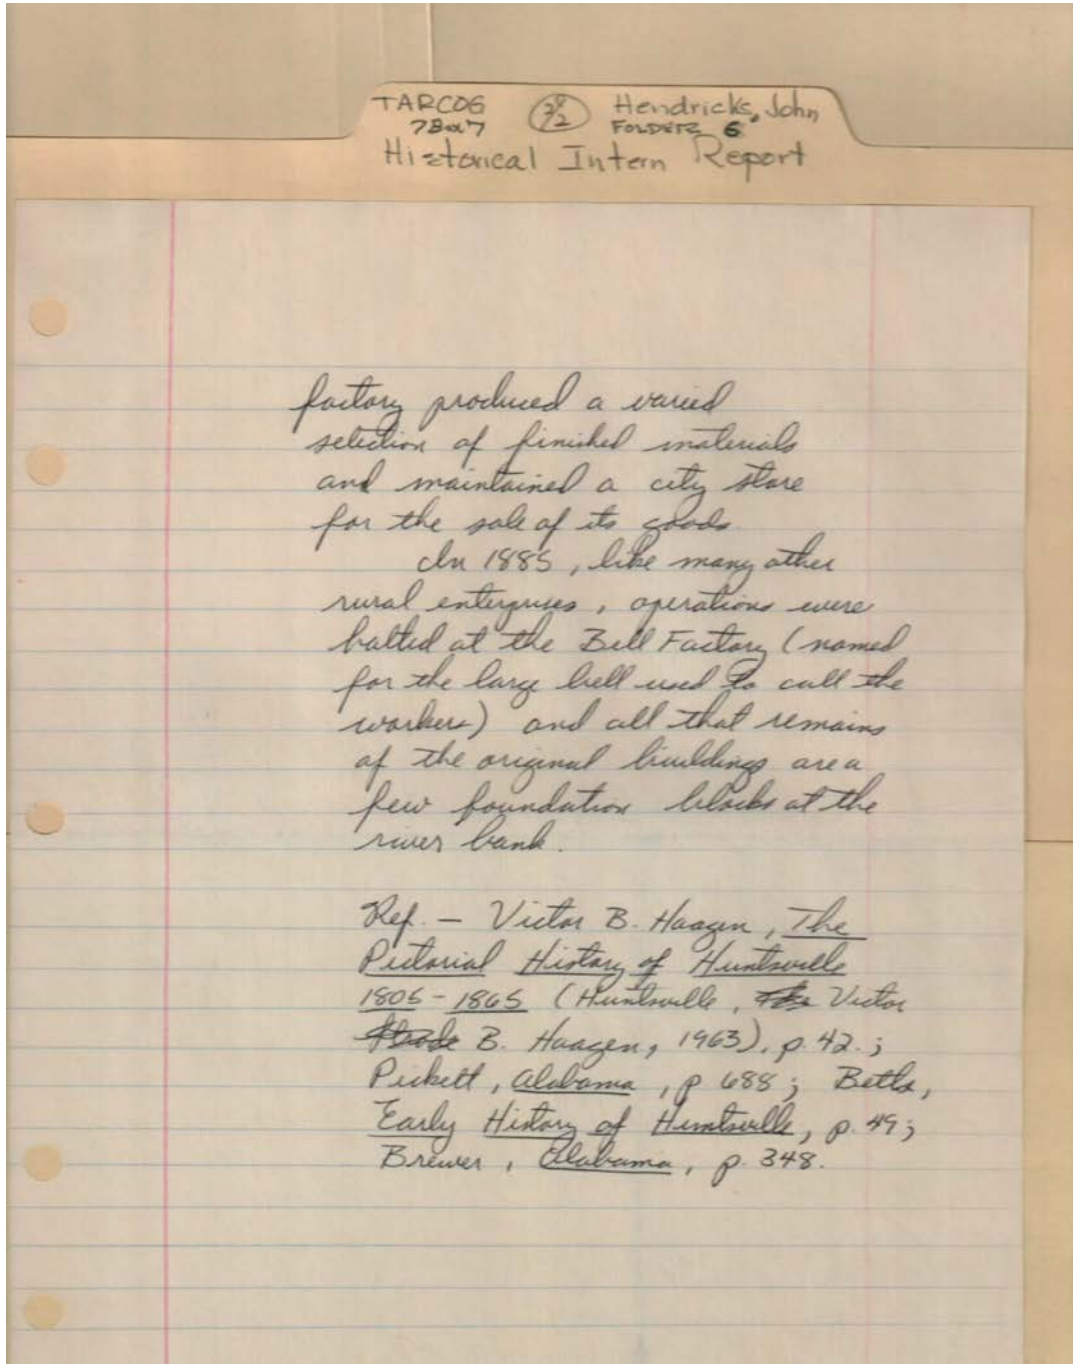 TARCOG Hendricks, John
FOLDER 6
Historical Intern Report
factory produced a varied
selection of finished materials
and maintained a city store
for the sale of its goods.
In 1885, like many other
rural enterprises, operations were
halted at the Bell Factory (named
for the large bell used to call the
workers) and all that remains
of the original buildings are a
few foundation blocks at the
river bank.
Ref. — Victor B. Haagen, The
Pictorial History of Huntsville
1805-1865 (Huntsville, Victor
B. Haagen, 1963), p. 42.;
Pickett, Alabama, p 688; Betts,
Early History of Huntsville, p. 49;
Brewer, Alabama, p. 348.